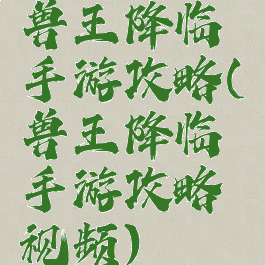 兽王降临
手游攻略(
兽王降临
手游攻略
视频)